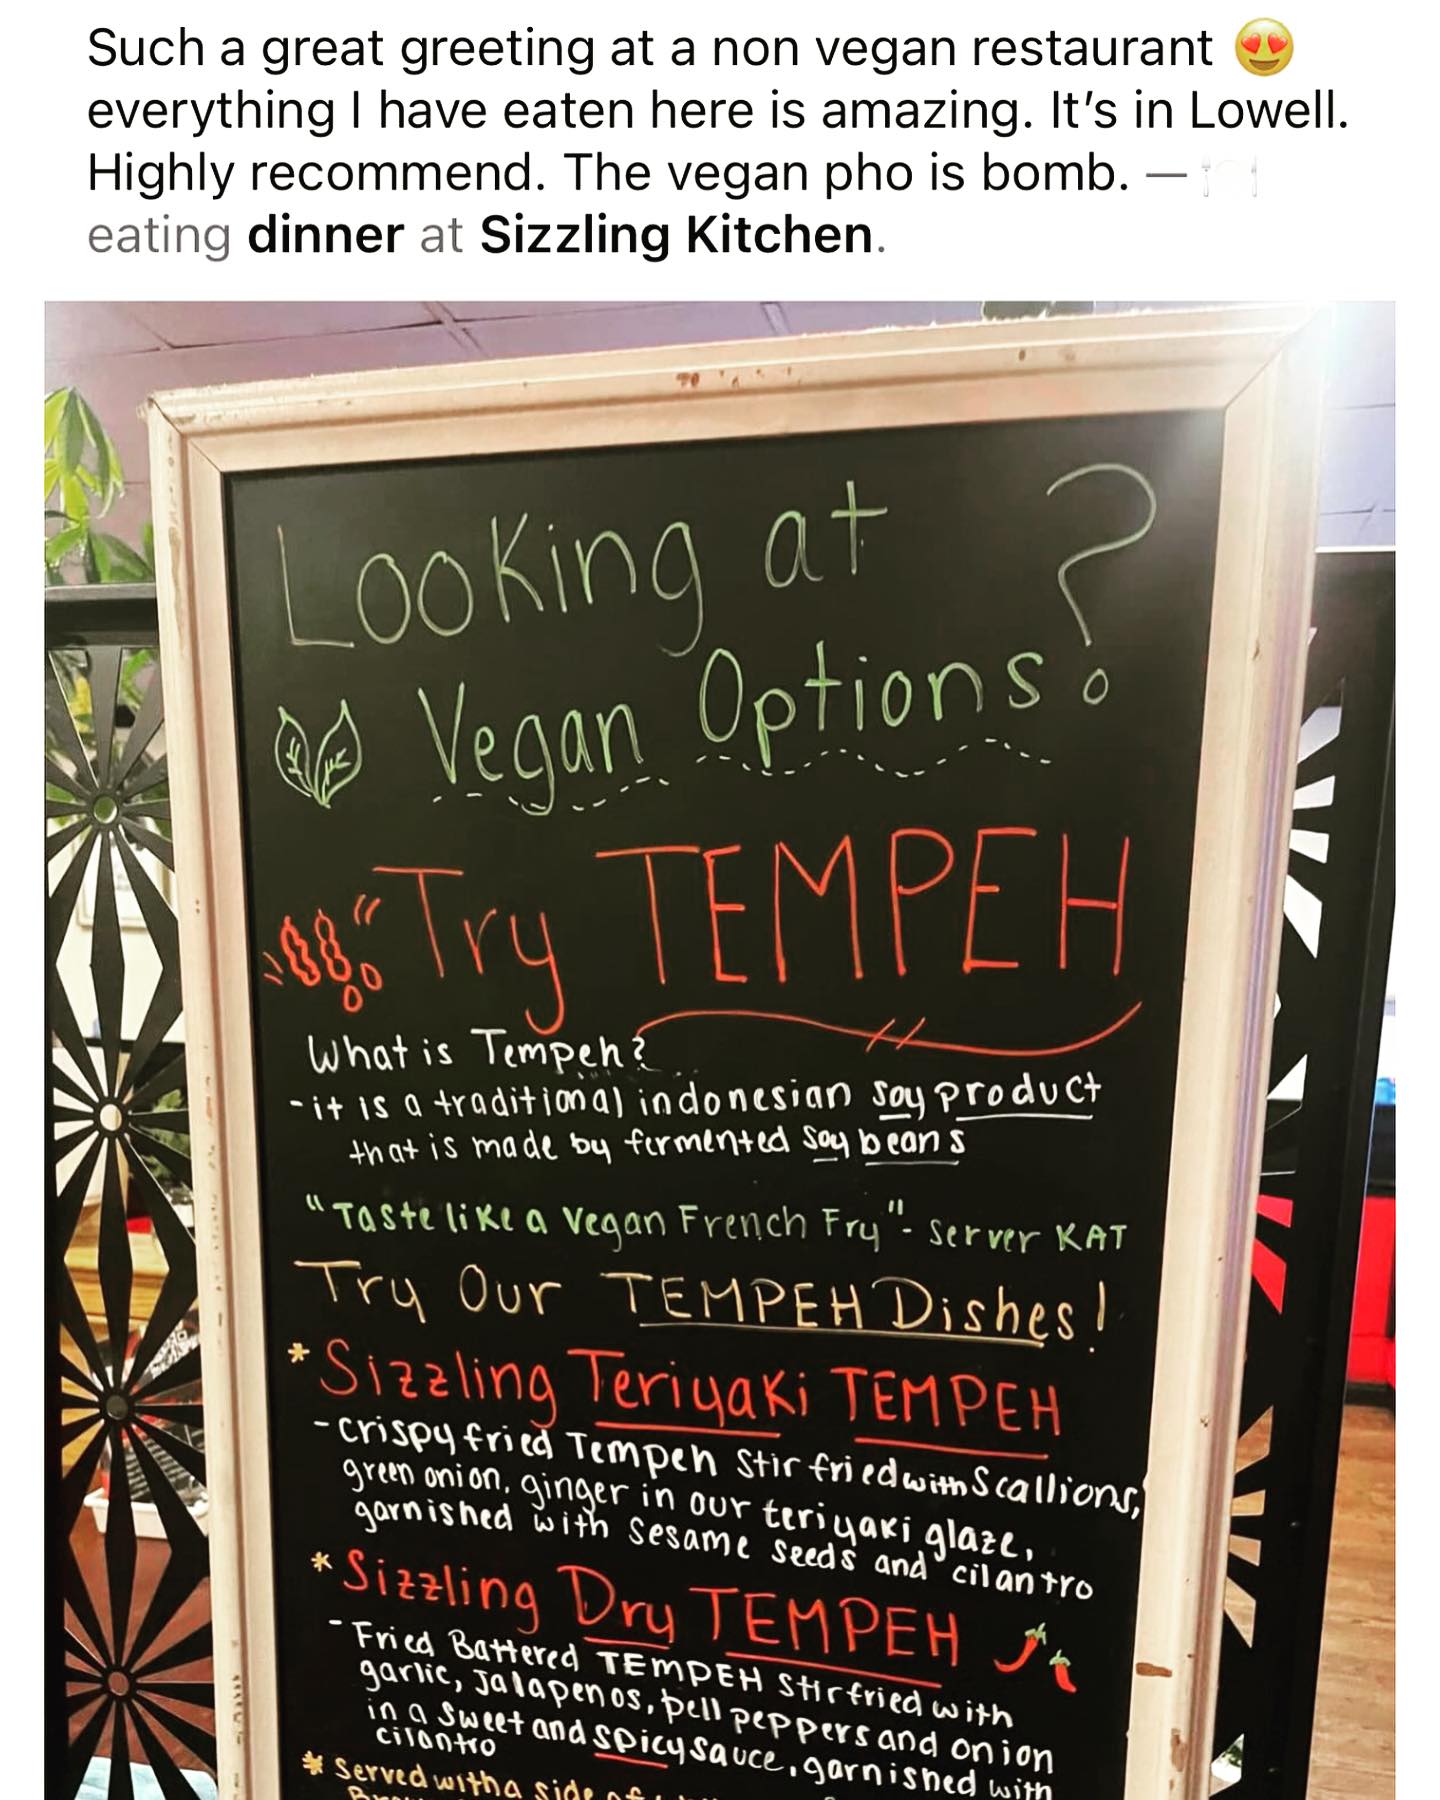 Such a great greeting at a non vegan restaurant 😍
everything I have eaten here is amazing. It's in Lowell.
Highly recommend. The vegan pho is bomb. — 🍽️
eating dinner at Sizzling Kitchen.
Looking at
Vegan Options?
Try TEMPEH
What is Tempeh?
- it is a traditional indonesian soy product
that is made by fermented soy beans
"Taste like a Vegan French Fry" - server KAT
Try Our TEMPEH Dishes!
* Sizzling Teriyaki TEMPEH
- crispy fried Tempeh stir fried with scallions,
green onion, ginger in our teriyaki glaze,
garnished with sesame seeds and cilantro
* Sizzling Dry TEMPEH
- Fried Battered TEMPEH stir fried with
garlic, jalapenos, bell peppers and onion
in a sweet and spicy sauce, garnished with
cilantro
* served with a side of